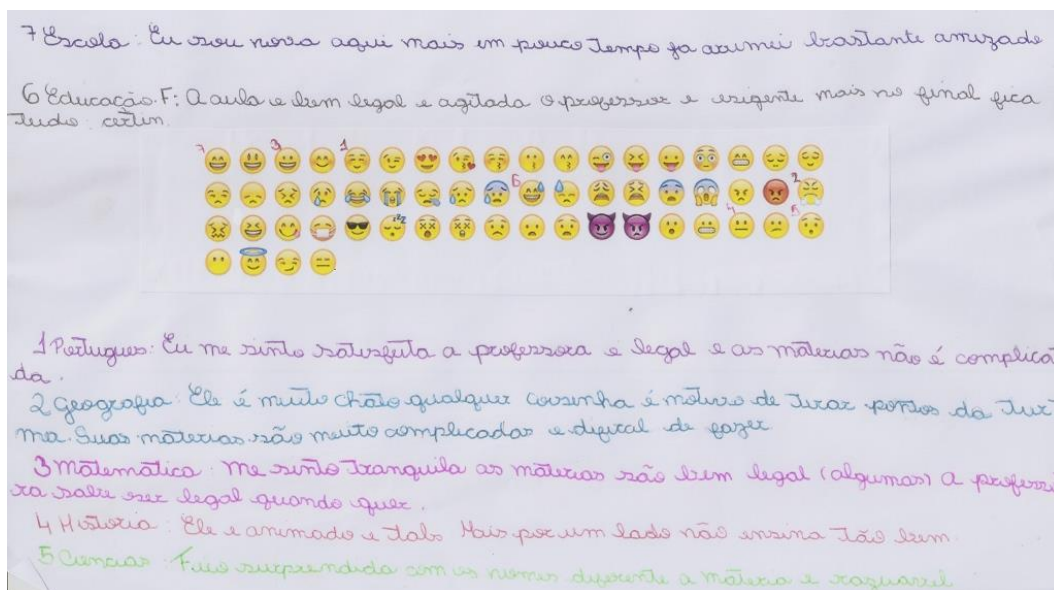 7 Escola: Eu sou nova aqui mais em pouco tempo ja arumei brastante amizade
6 Educação.F: A aula e bem legal e agitada o professor e exigente mais no final fica
tudo certin.
7 3 1
6 2
4 5
1 Portugues: Eu me sinto satisfeita a professora e legal e as materias não é complica
da.
2 Geografia: Ele é muito chato qualquer coisinha é motivo de tirar pontos da tur
ma. Suas materias são muito complicadas e difical de fazer
3 Matematica: me sinto tranquila as materias são bem legal (algumas) a professo
ra sabe ser legal quando quer.
4 Historia: Ele e animado e tals Mais por um lado não ensina tão bem.
5 Ciencias: Fico surprendida com os nomes diferente a materia e razuavel